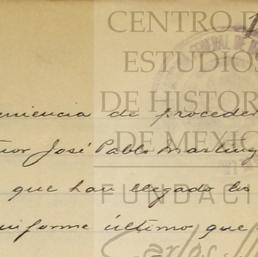 CENTRO D
ESTUDIOS
DE HISTOR
DE MEXIC
FUNDACI
Carlos
eniencia de proceder
ñor José Pablo Martíne
que han llegado los
informe último que